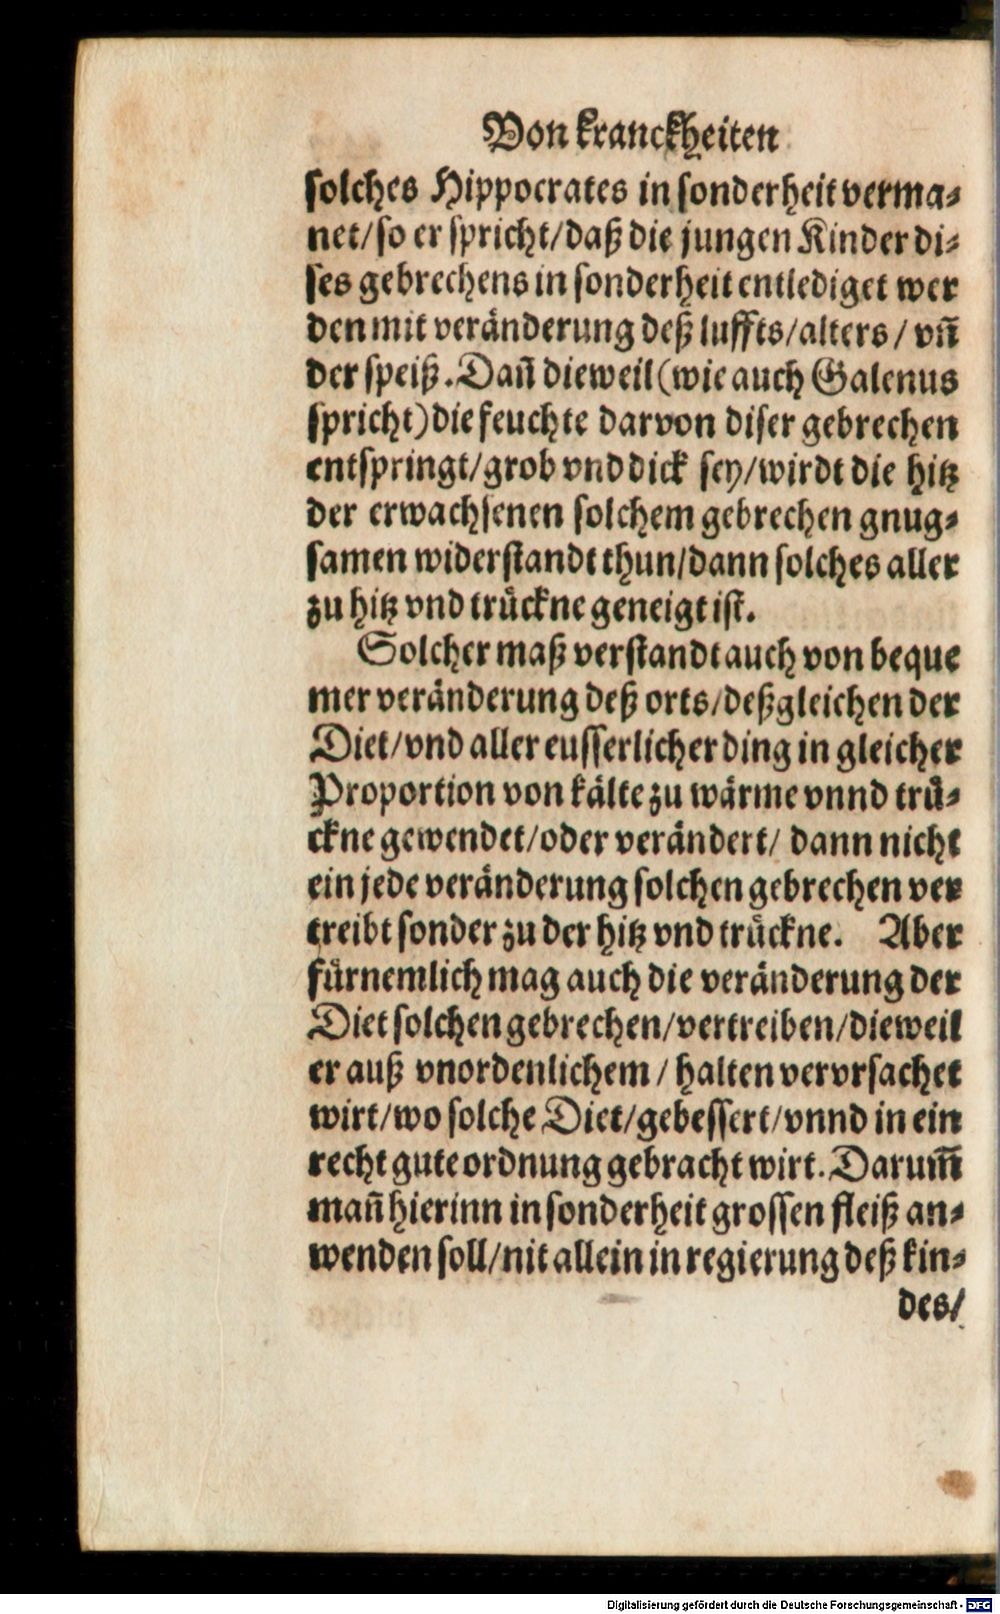 Von kranckheiten
solches Hippocrates in sonderheit verma⸗
net/so er spricht/daß die jungen Kinder di⸗
ses gebrechens in sonderheit entlediget wer
den mit veränderung deß luffts/alters/ vñ
der speiß. Dañ dieweil (wie auch Galenus
spricht) die feuchte darvon diser gebrechen
entspringt/grob vnd dick sey/wirdt die hitz
der erwachsenen solchem gebrechen gnug⸗
samen widerstandt thun/dann solches aller
zu hitz vnd trückne geneigt ist.
Solcher maß verstandt auch von beque
mer veränderung deß orts/deßgleichen der
Diet/vnd aller eusserlicher ding in gleicher
Proportion von kälte zu wärme vnnd trü⸗
ckne gewendet/oder verändert/ dann nicht
ein jede veränderung solchen gebrechen ver
treibt sonder zu der hitz vnd trückne. Aber
fürnemlich mag auch die veränderung der
Diet solchen gebrechen/vertreiben/dieweil
er auß vnordenlichem/ halten vervrsachet
wirt/wo solche Diet/gebessert/vnnd in ein
recht gute ordnung gebracht wirt. Darum̃
mañ hierinn in sonderheit grossen fleiß an⸗
wenden soll/nit allein in regierung deß kin⸗
des/
Digitalisierung gefördert durch die Deutsche Forschungsgemeinschaft - DFG